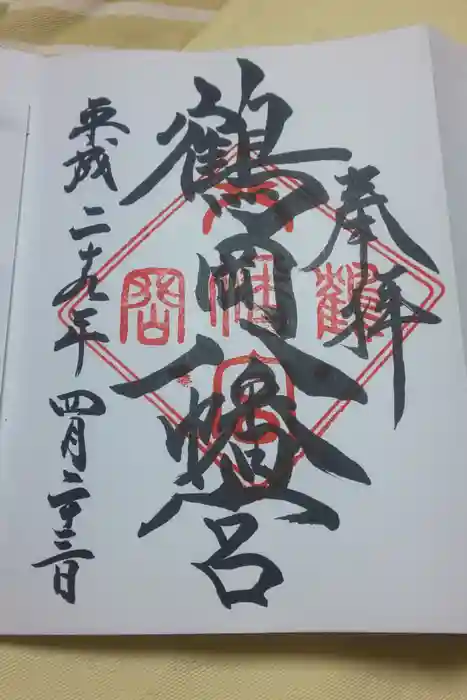 奉拝
鶴岡八幡宮
平成二十九年 四月二十三日
鶴
岡